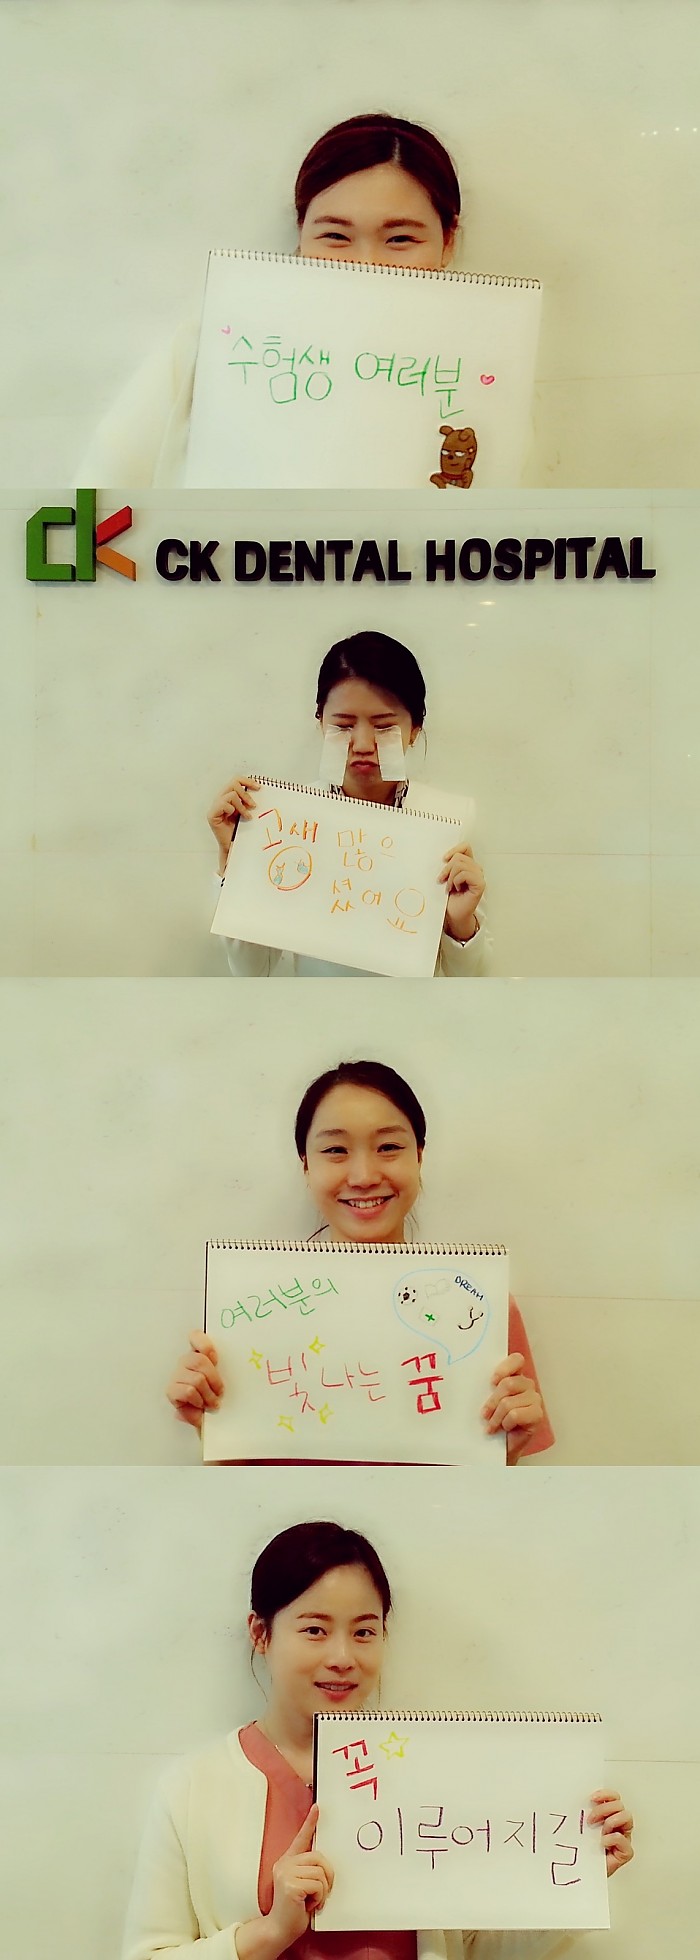 수험생 여러분
ck
CK DENTAL HOSPITAL
고생 많으
셨어요
여러분의
DREAM
빛나는 꿈
꼭
이루어지길